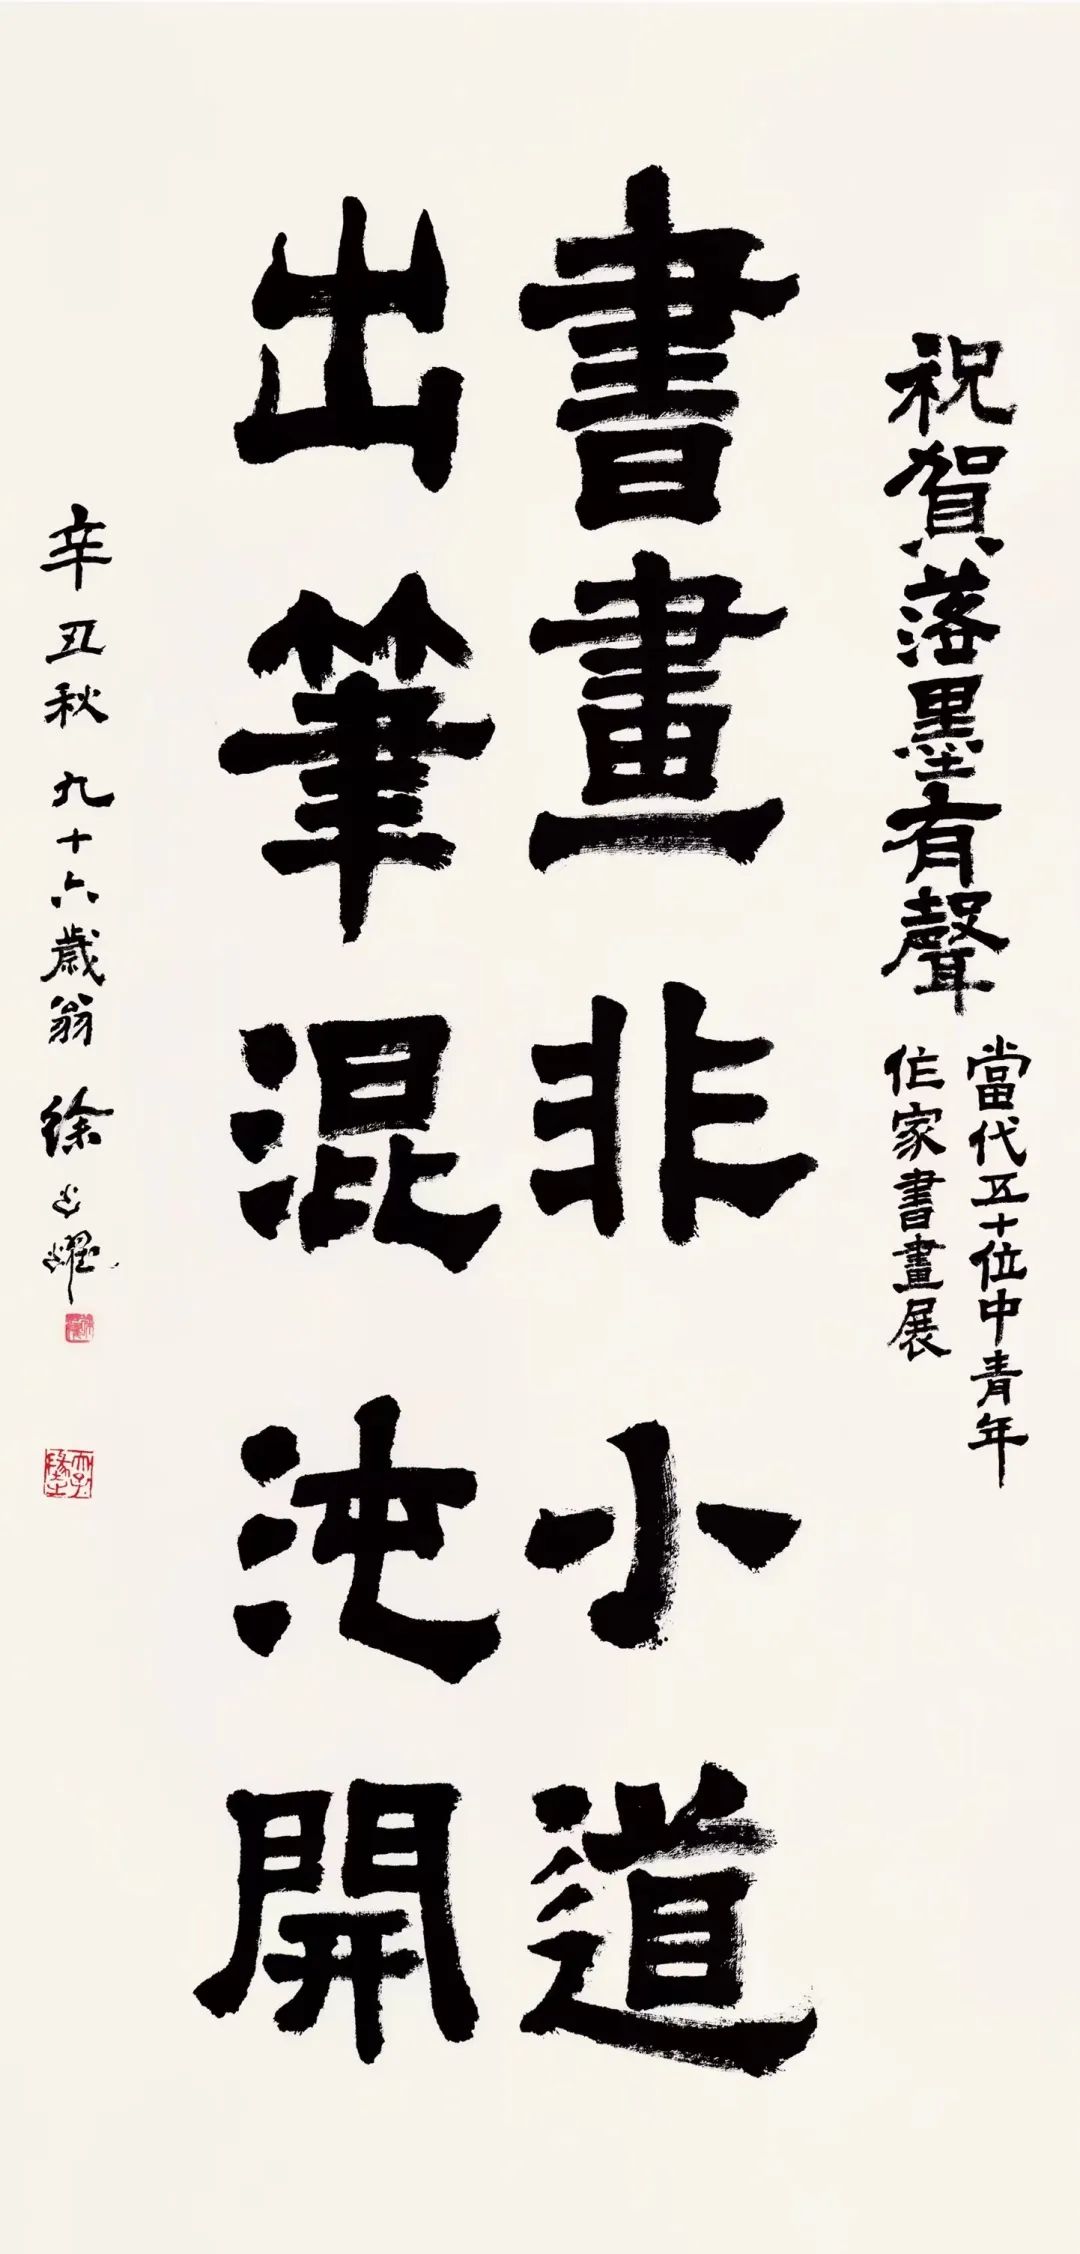 祝賀落墨有聲
當代五十位中青年
作家書畫展
書畫非小道
出筆混沌開
辛丑秋 九十六歲翁 徐